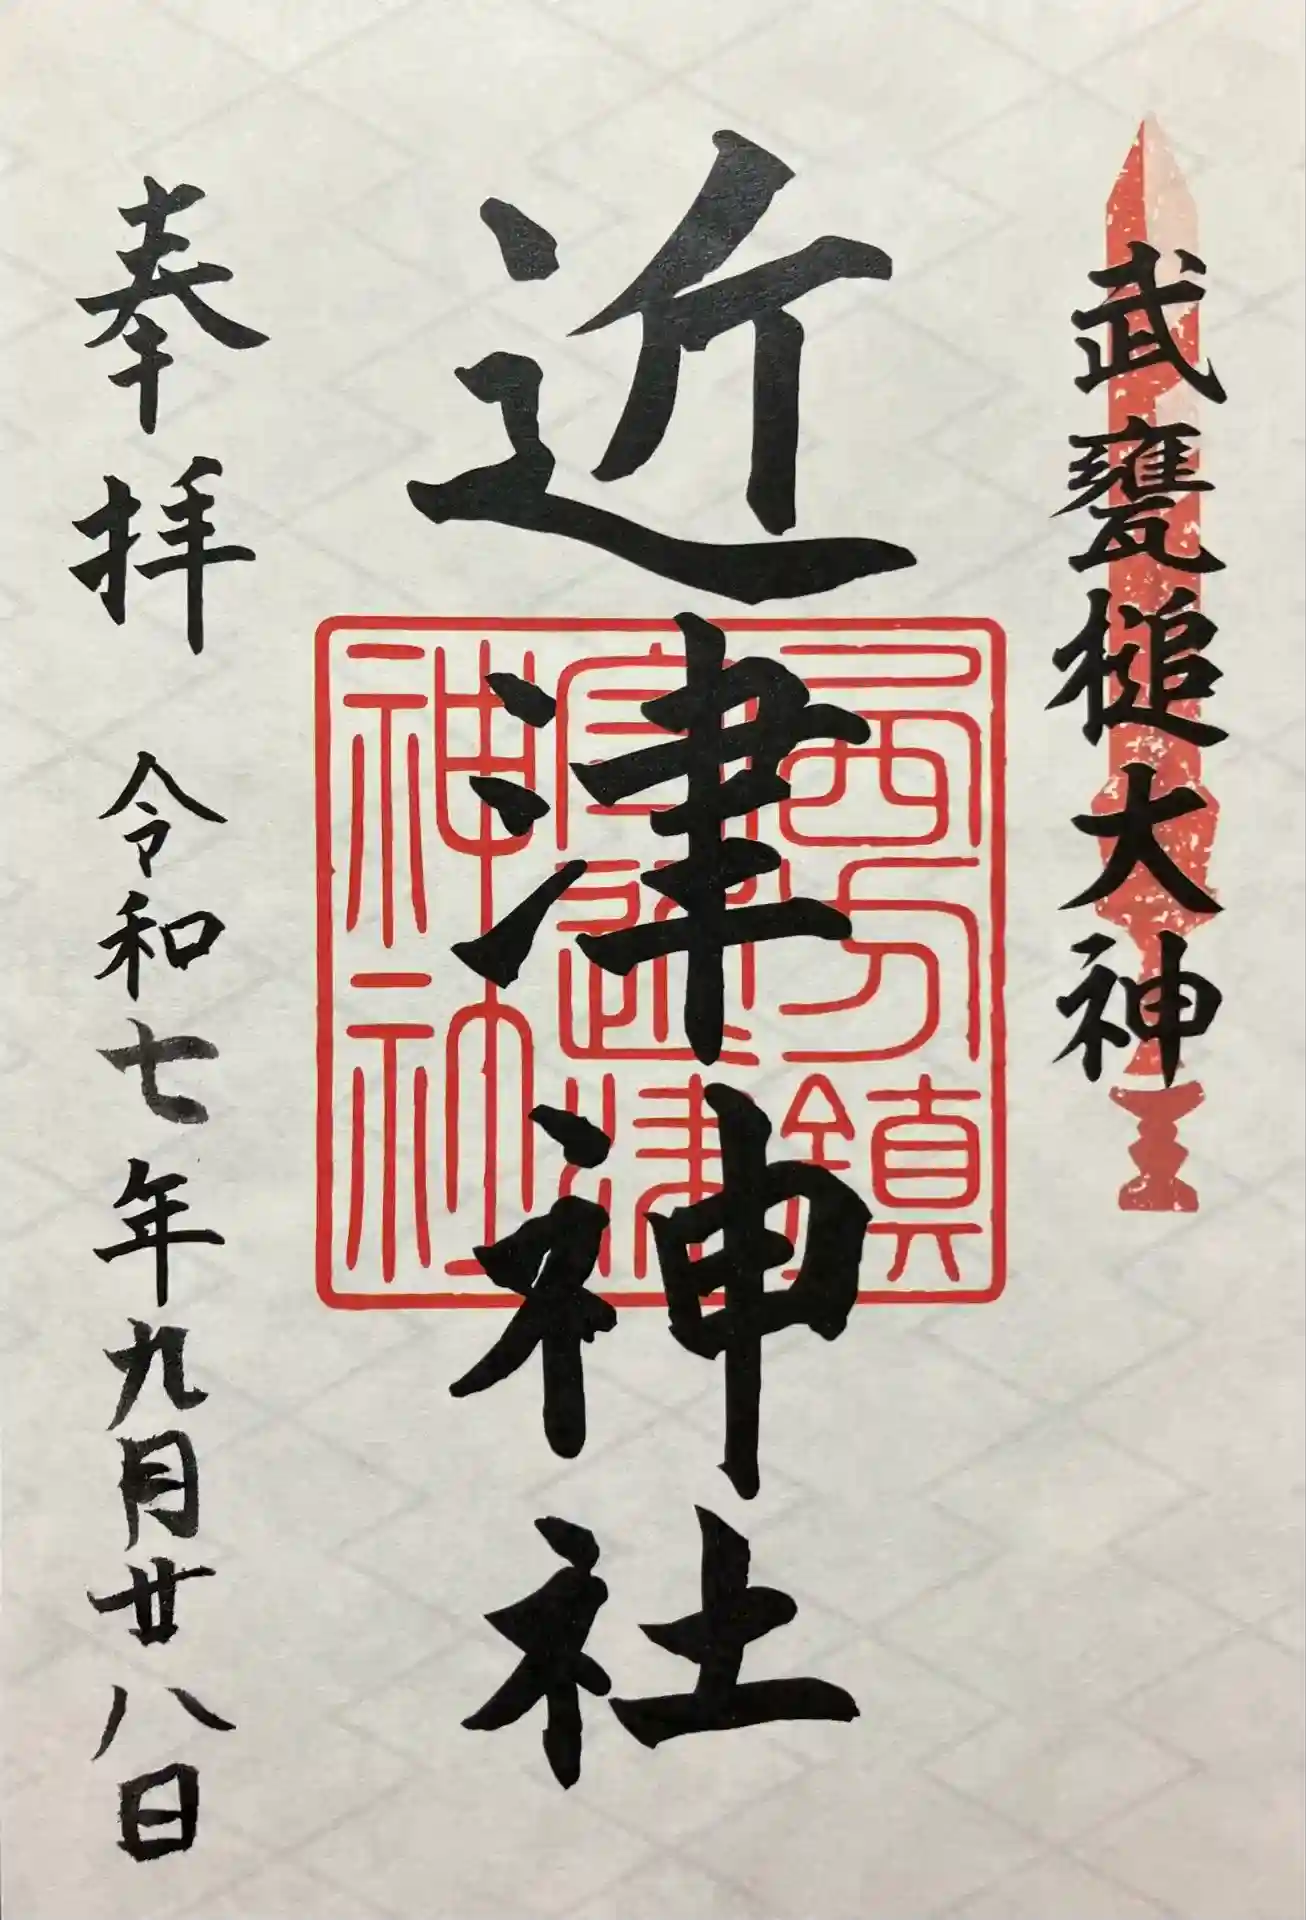 武甕槌大神
近津神社
西方鎮
座近津
神社
奉拝 令和七年九月廿八日